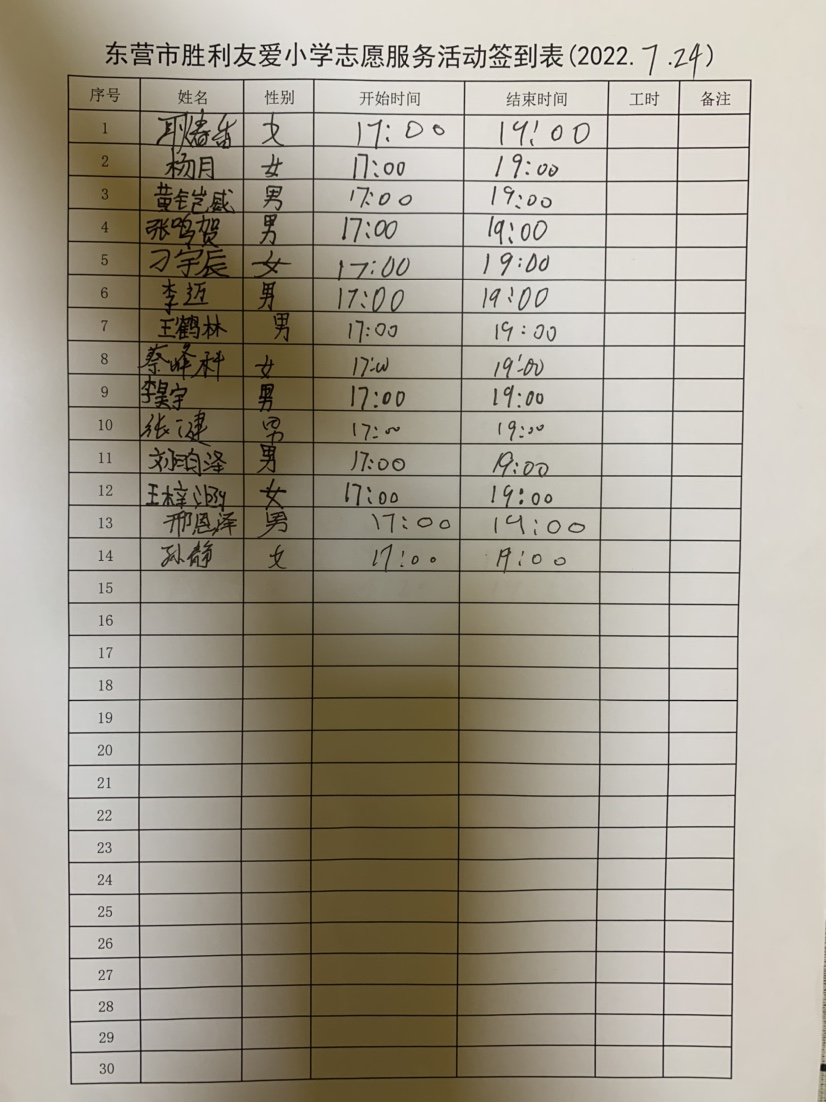 东营市胜利友爱小学志愿服务活动签到表(2022.7.24)
序号 姓名 性别 开始时间 结束时间 工时 备注
1 女 17:00 19:00
2 杨月 女 17:00 19:00
3 黄钰岂威 男 17:00 19:00
4 张鸣贺 男 17:00 19:00
5 刁宇辰 女 17:00 19:00
6 李迈 男 17:00 19:00
7 王鹤林 男 17:00 19:00
8 蔡峰科 女 17:00 19:00
9 李昊宇 男 17:00 19:00
10 男 17:00 19:00
11 刘昀泽 男 17:00 19:00
12 王梓 女 17:00 19:00
13 邢恩泽 男 17:00 19:00
14 孙静 女 17:00 19:00
15
16
17
18
19
20
21
22
23
24
25
26
27
28
29
30